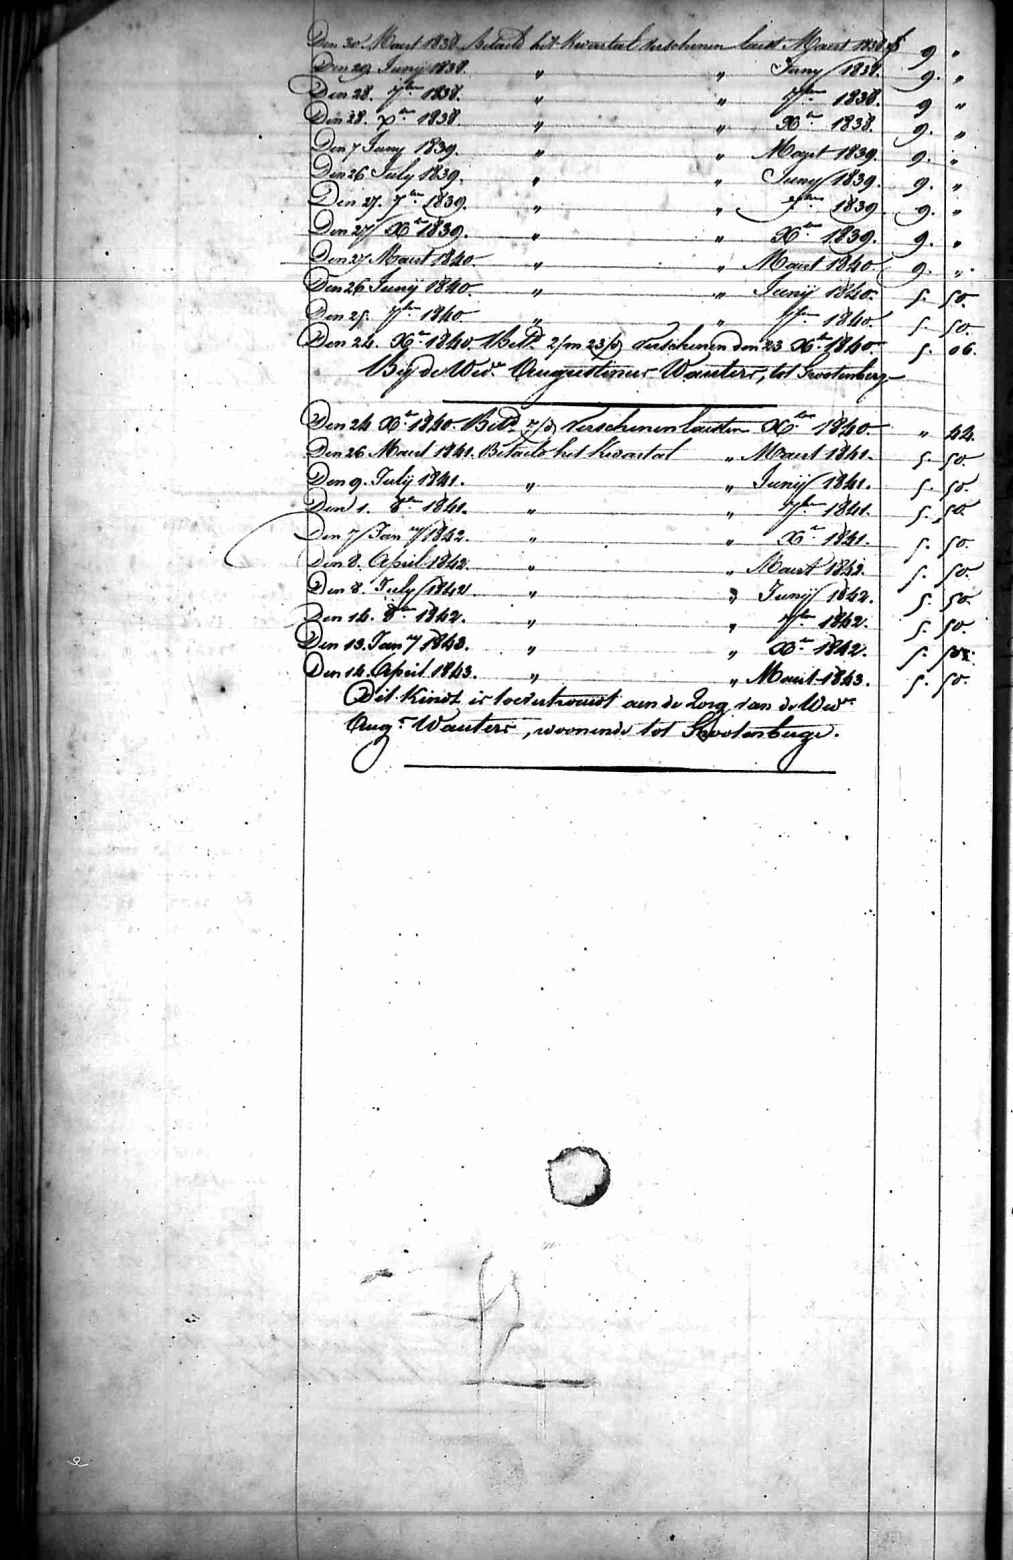 Den 30 Maert 1838 Betaeld het kwartael verschenen laest Maert 1838 f 9 "
Den 29 Juny 1838. " " Juny 1838. 9. "
Den 28. 7ber 1838. " " 7ber 1838. 9 "
Den 28. Xber 1838. " " Xber 1838. 9. "
Den 7 Juny 1839. " " Maert 1839. 9. "
Den 26 July 1839. " " Juny 1839. 9. "
Den 27. 7ber 1839. " " 7ber 1839 9. "
Den 27 Xber 1839. " " Xber 1839. 9. "
Den 27 Maert 1840. " " Maert 1840. 9. "
Den 26 Juny 1840. " " Junij 1840. 5. 50.
Den 25. 7ber 1840 " " 7ber 1840. 5. 50.
Den 24. Xber 1840. Betd. 2/m 23/d verschenen den 23 Xber 1840. 5. 06.
Bij de Wede Augustinus Wauters, tot Grootenberge
Den 24 Xber 1840. Betd 7/d verschenen laesten Xber 1840. " 44.
Den 26 Maert 1841. Betaeld het kwartael " Maert 1841. 5. 50.
Den 9. Julij 1841. " " Junij 1841. 5. 50.
Den 1. 8ber 1841. " " 7ber 1841. 5. 50.
Den 7 Jany 1842. " " Xber 1841. 5. 50.
Den 8. April 1842. " " Maert 1842. 5. 50.
Den 8. July 1842 " " Junij 1842. 5. 50.
Den 14. 8ber 1842. " " 7ber 1842. 5. 50.
Den 13. Jany 1843. " " Xber 1842. 5. 50.
Den 14. April 1843. " " Maert 1843. 5. 50.
Dit Kindt is toevertrouwt aen de zorg van de Wede
Augs Wauters, woonende tot Grootenberge.